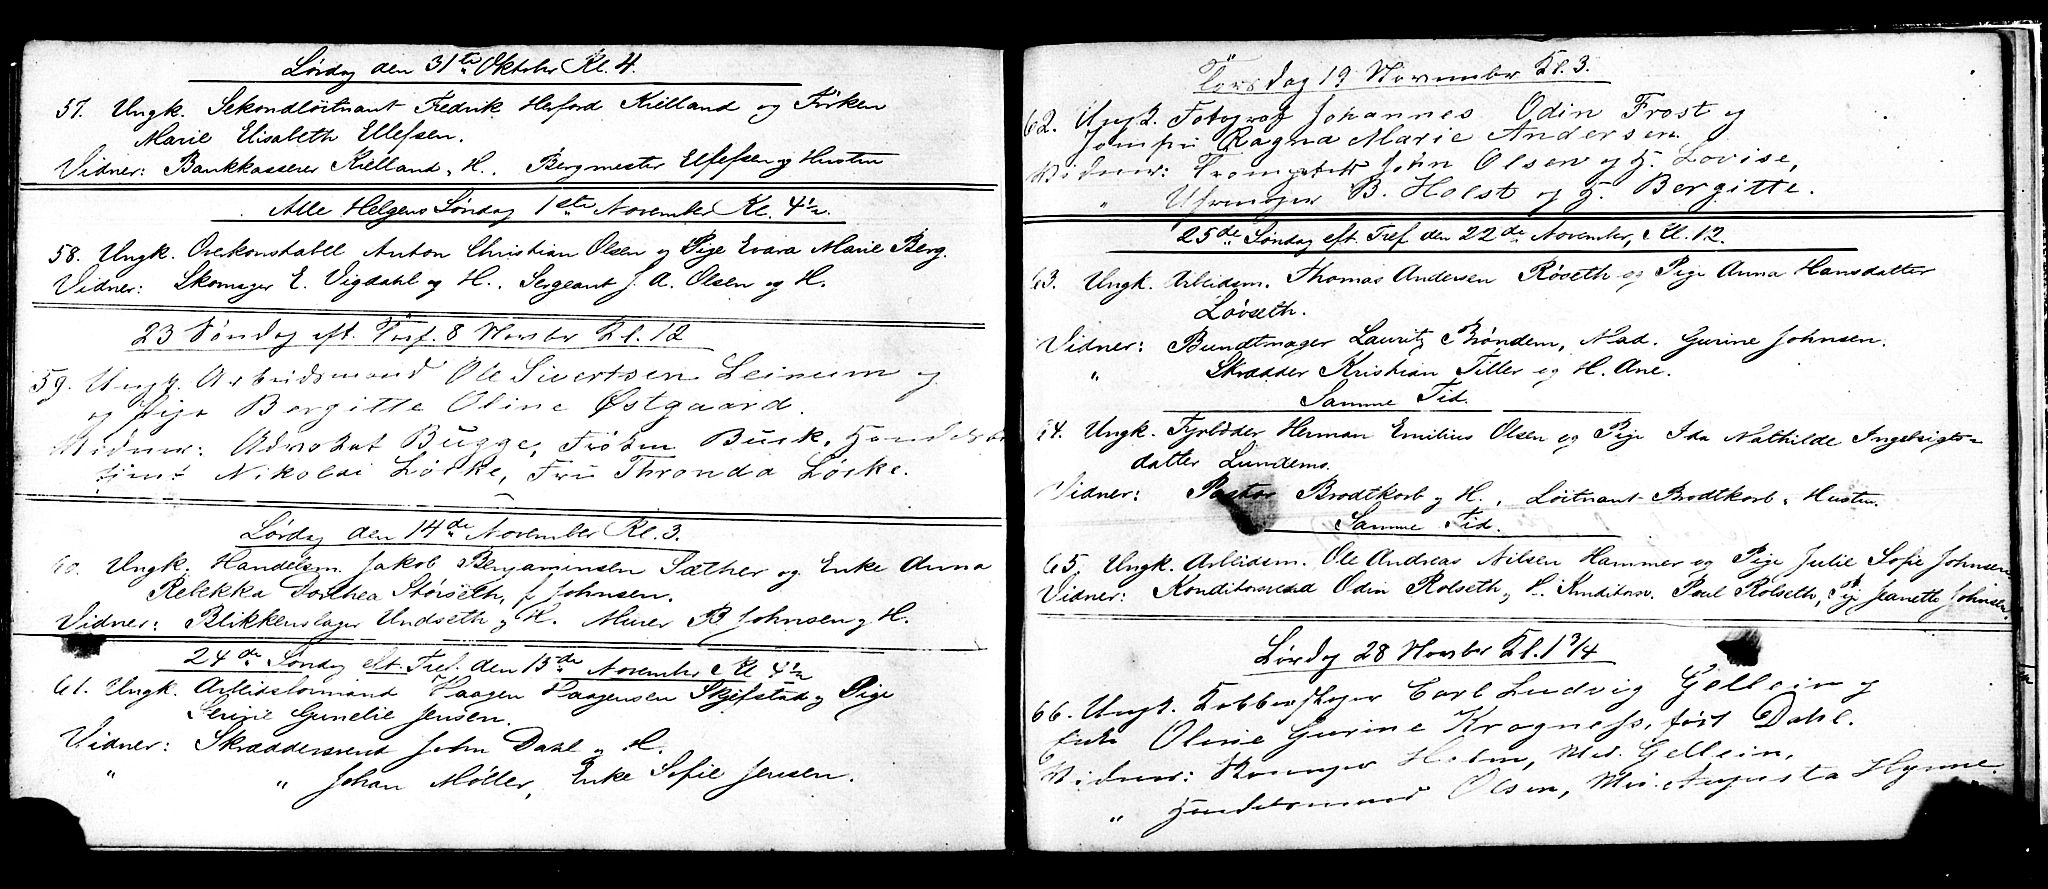 Lørdag den 31te Oktober Kl. 4.
57. Ungk. Sekondlöitnant Fredrik Herford Kielland og Fröken
Marie Elisabeth Ellefsen.
Vidner: Bankkasserer Kielland, H., Bergmester Ellefsen og Hustru
Alle Helgens Søndag 1ste November Kl. 4½.
58. Ungk. Overkonstabel Anton Christian Olsen og Pige Evara Marie Berg.
Vidner: Skomager E. Vigdahl og H., Sergeant J. A. Olsen og H.
23 Søndag eft. Tref. 8 Novbr Kl. 12
59. Ungk. Arbeidsmand Ole Sivertsen Leinum og
og Pige Bergitte Oline Østgaard.
Vidner: Advokat Bugge, Fröken Busk, Handels
Nikolai Löcke, Fru Thronda Löcke.
Lørdag den 14de November Kl. 3.
60. Ungk. Handelsm. Jakob Benjaminsen Sæther og Enke Anna
Rebekka Dorthea Störseth, f. Johnsen.
Vidner: Blikkenslager Undseth og H. Murer B Johnsen og H.
24de Søndag eft. Tref. den 15de November Kl 4½
61. Ungk. Arbeidsformand Haagen Haagensen Skjefstad og Pige
Serine Gunelie Jensen.
Vidner: Skræddersvend John Dahl og H.
" " Johan Möller, Enke Sofie Jensen.
Torsdag 19 November Kl. 3.
62. Ungk. Fotograf Johannes Odin Frost og
Jomfru Ragna Marie Andersen
Vidner: John Olsen og H. Lovise,
" Urmager B. Holst og H. Bergitte.
25de Søndag eft. Tref den 22de November, Kl. 12.
63. Ungk. Arbeidsm. Thomas Andersen Røseth og Pige Anna Hansdatter
Løvseth.
Vidner: Bundtmager Lauritz Brøndem, Mad. Gurine Johnsen.
" Skrædder Kristian Tiller og H. Ane.
Samme Tid.
64. Ungk. Fyrbøder Herman Emilius Olsen og Pige Ida Mathilde Ingebrigts-
datter Lundems.
Vidner: Pastor Brodtkorb og H., Löitnant Brodtkorb, Hustru.
Samme Tid.
65. Ungk. Arbeidsm. Ole Andreas Nilsen Hammer og Pige Julie Sofie Johnsen.
Vidner: Konditorsvend Odin Rolseth, H. Konditorsv. Paul Rolseth, Pige Jeanette Johnsen.
Lørdag 28 Novbr Kl. 1¾
66. Ungk. Kobberslager Carl Ludvig Gellein og
Enke Oline Gurine Kragness, født Dahl.
Vidner: Holm, Mad. Gellein,
" Handelsmand Olsen, Mad. Augusta Hynne.